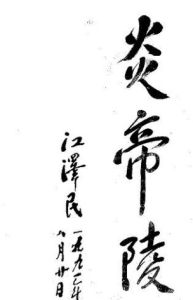 炎帝陵
江澤民
一九九 年
八月廿日